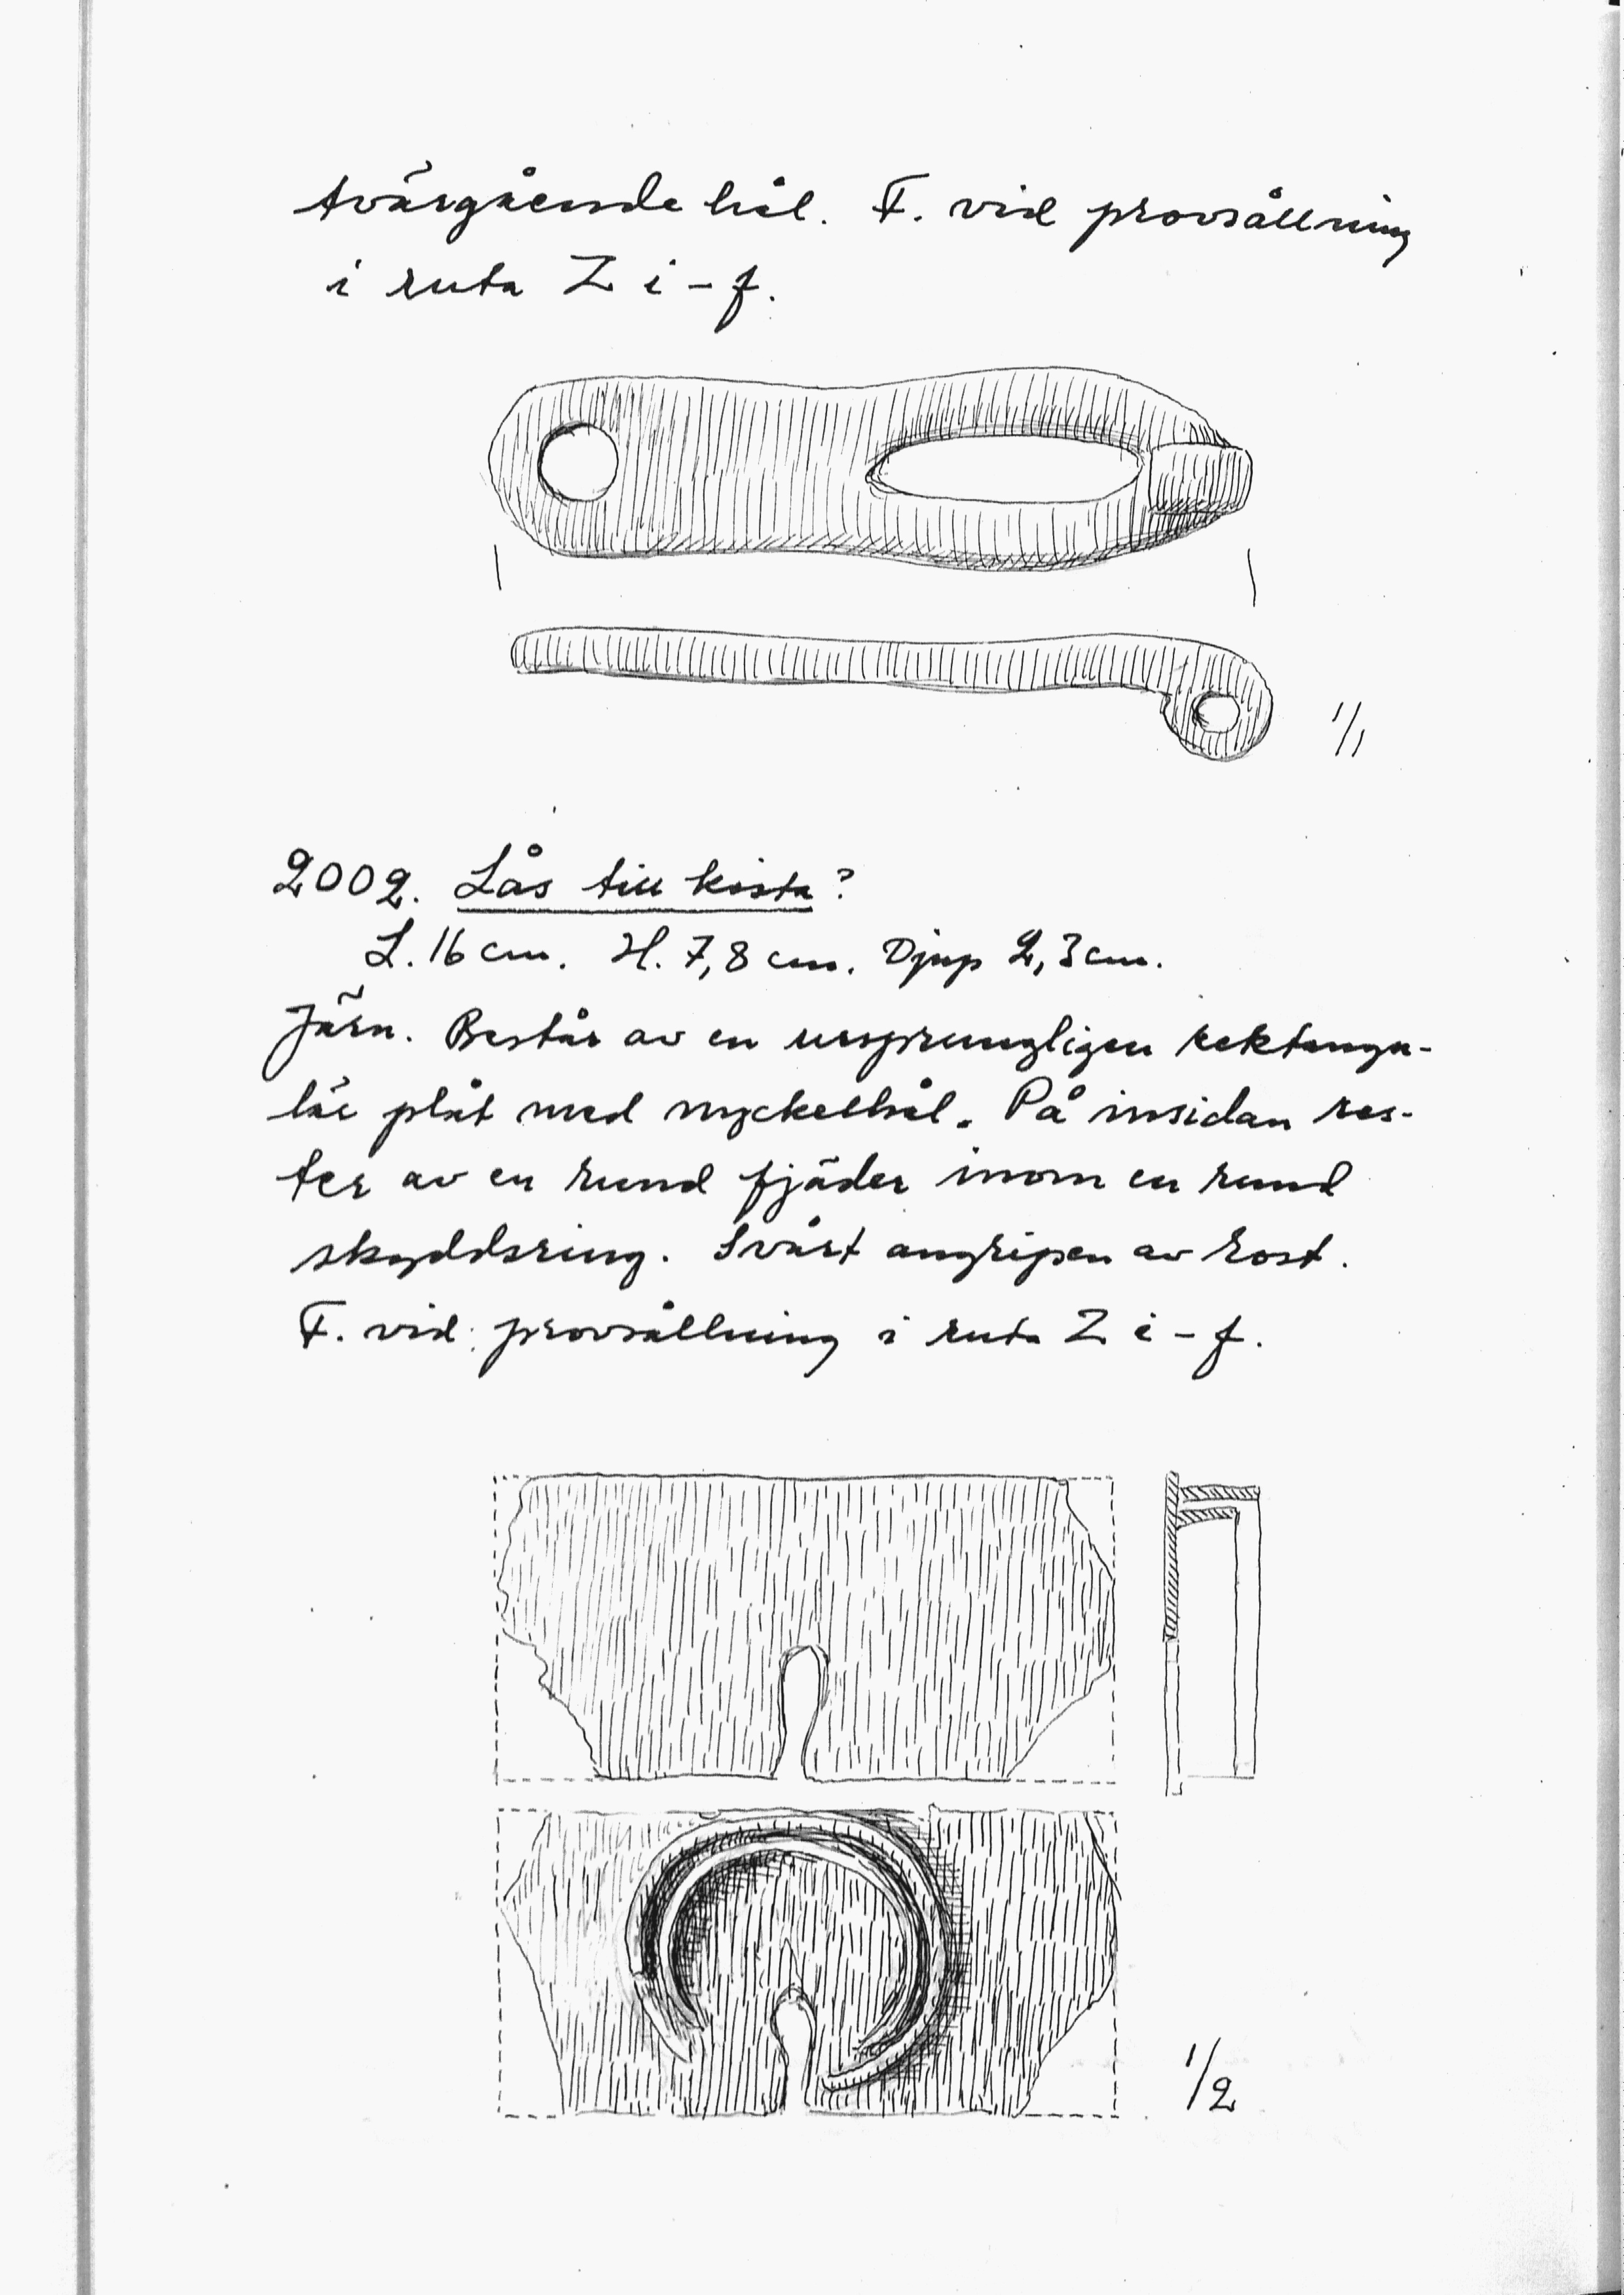 tvärgående hål. F. vid provsållning
i ruta Z i - f.
1/1
2002. Lås till kista?
L. 16 cm. H. 7,8 cm. Djup 2,3 cm.
Järn. Består av en ursprungligen rektangu-
lär plåt med nyckelhål. På insidan res-
ter av en rund fjäder inom en rund
skyddsring. Svårt angripen av rost.
F. vid provsållning i ruta Z i - f.
1/2